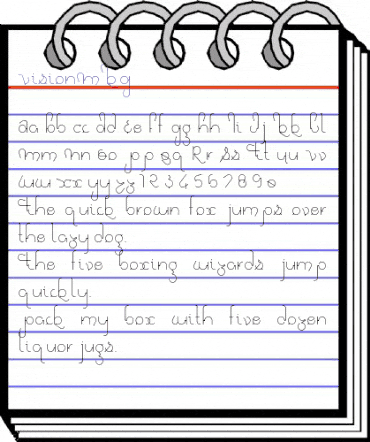 visionm'bg
aa bb cc dd ee ff gg hh ii jj kk ll
mm nn oo pp qq Rr ss tt uu vv
ww xx yy zz 1 2 3 4 5 6 7 8 9 0
The quick brown fox jumps over
the lazy dog.
The five boxing wizards jump
quickly.
pack my box with five dozen
liquor jugs.